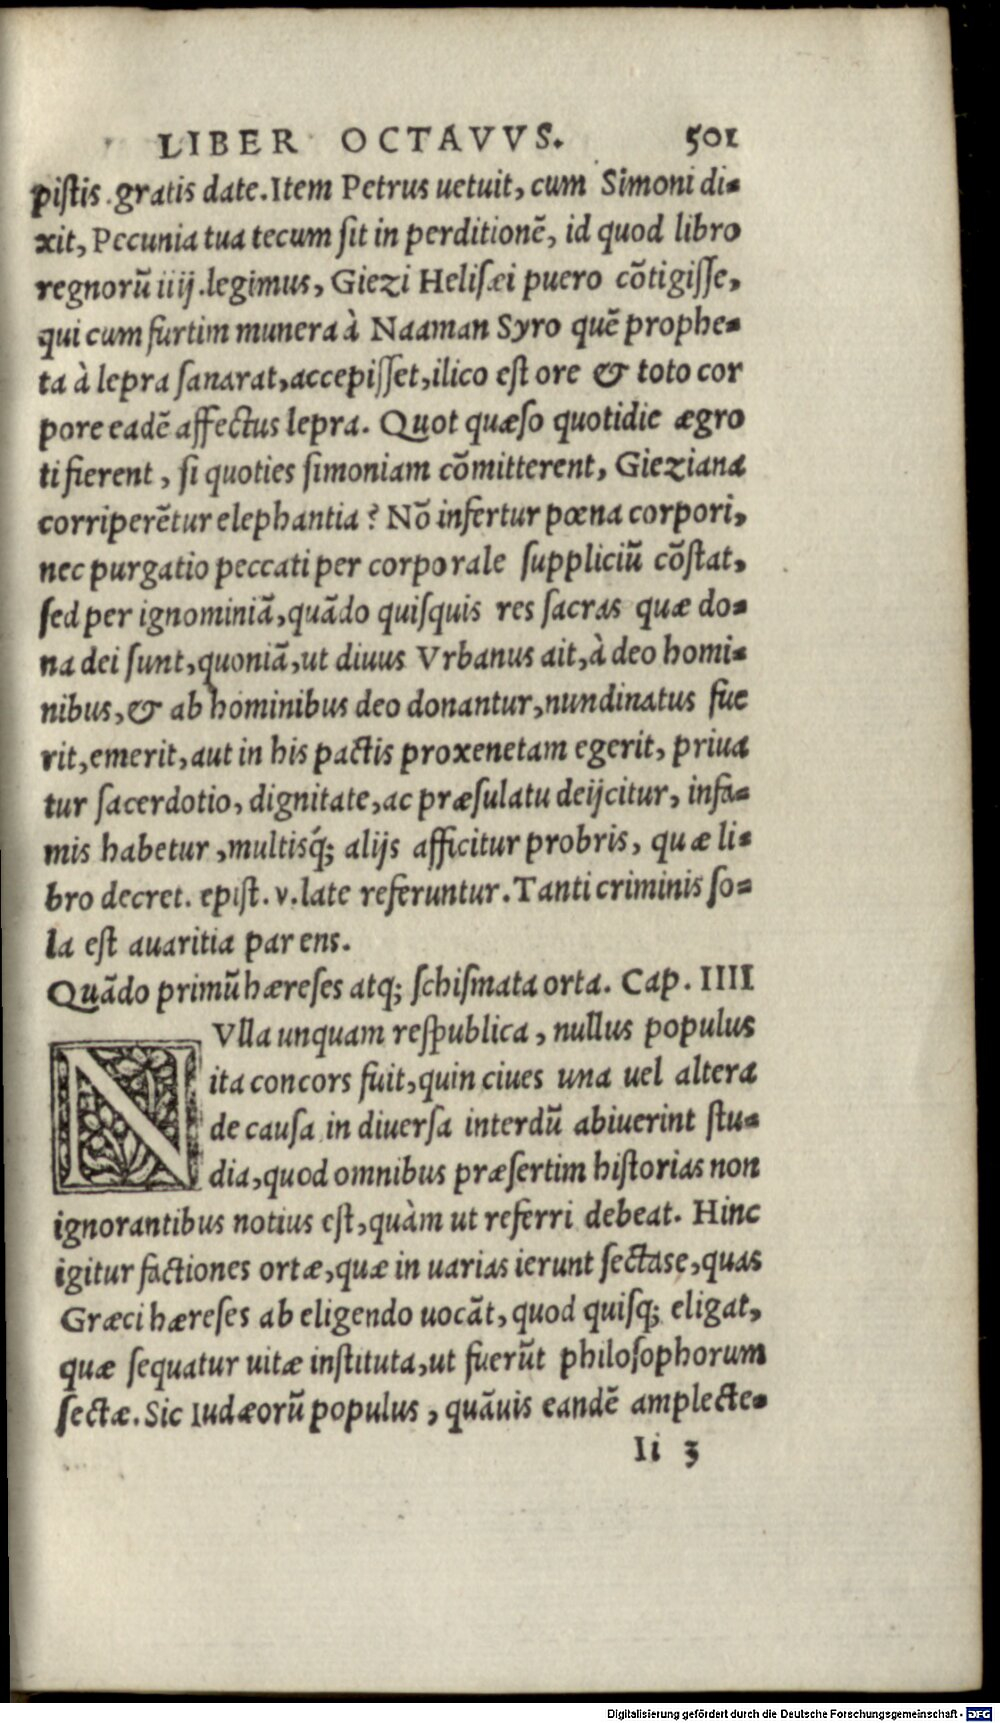 LIBER OCTAVVS. 501
piſtis. gratis date. Item Petrus uetuit, cum Simoni di-
xit, Pecunia tua tecum ſit in perditionē, id quod libro
regnorū iiij. legimus, Giezi Heliſæi puero cōtigiſſe,
qui cum furtim munera à Naaman Syro quē prophe-
ta à lepra ſanarat, accepiſſet, ilico eſt ore & toto cor
pore eadē affectus lepra. Quot quæſo quotidie ægro
ti fierent, ſi quoties ſimoniam cōmitterent, Gieziana
corriperētur elephantia? Nō infertur pœna corpori,
nec purgatio peccati per corporale ſuppliciū cōſtat,
ſed per ignominiā, quādo quiſquis res ſacras quæ do-
na dei ſunt, quoniā, ut diuus Vrbanus ait, à deo homi-
nibus, & ab hominibus deo donantur, nundinatus fue
rit, emerit, aut in his pactis proxenetam egerit, priua
tur ſacerdotio, dignitate, ac præſulatu deijcitur, infa-
mis habetur, multisq́; alijs afficitur probris, quæ li-
bro decret. epiſt. v. late referuntur. Tanti criminis ſo-
la eſt auaritia parens.
Quādo primū hæreſes atq; ſchiſmata orta. Cap. IIII
NVlla unquam reſpublica, nullus populus
ita concors fuit, quin ciues una uel altera
de cauſa in diuerſa interdū abiuerint ſtu-
dia, quod omnibus præſertim hiſtorias non
ignorantibus notius eſt, quàm ut referri debeat. Hinc
igitur factiones ortæ, quæ in uarias ierunt ſectaſe, quas
Græci hæreſes ab eligendo uocāt, quod quiſq; eligat,
quæ ſequatur uitæ inſtituta, ut fuerūt philoſophorum
ſectæ. Sic Iudæorū populus, quāuis eandē amplecte-
Ii 3
Digitalisierung gefördert durch die Deutsche Forschungsgemeinschaft - DFG